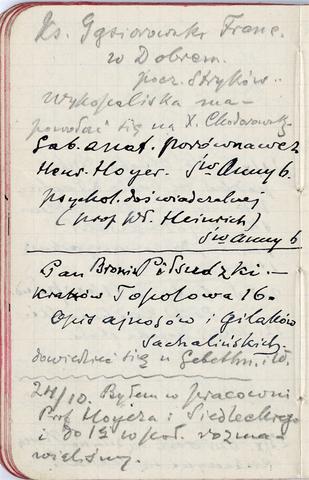 Ks. Gąsiorowski Franc.
w Dobrem.
pocz. Stryków.
Wykopaliska ma-
powołać się na X. Chodorowsk.
Gab. anat. porównawcz.
Henr. Hoyer. Św Anny 6.
psychol. doświadczalnej
(prof Wł. Heinrich)
Św Anny 6
Pan Bronis Piłsudzki.—
Kraków Topolowa 16.
Opis ajnosów i Gilaków
Sachalińskich.
dowiedzieć się u
24/10. Byłem w pracowni
Prof Hoyera i Siedleckiego
i do 1½ w poł. rozma-
wieliśmy.